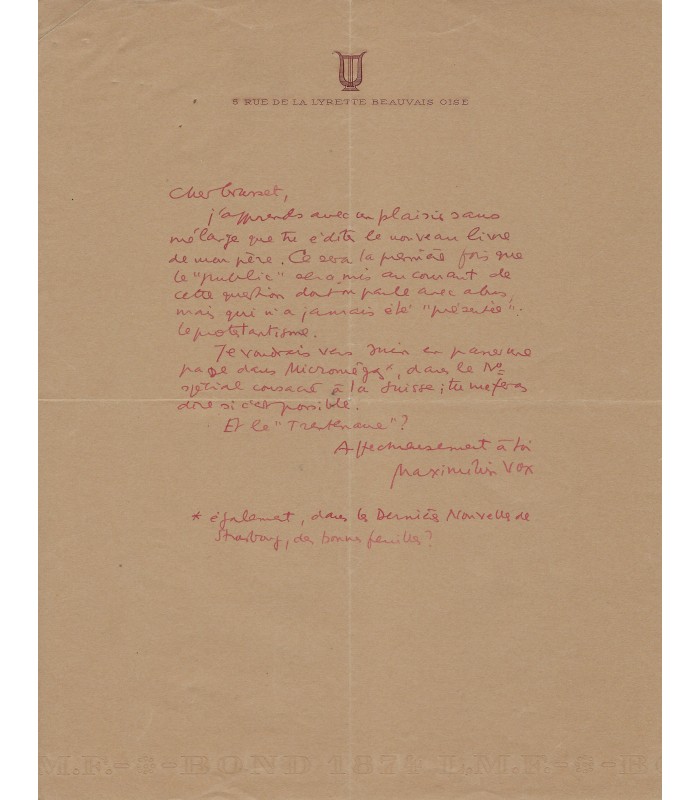 5 RUE DE LA LYRETTE BEAUVAIS OISE
Cher Grasset,
j'apprends avec un plaisir sans
mélange que tu édites le nouveau livre
de mon père. Ce sera la première fois que
le "public" sera mis au courant de
cette question dont on parle avec abus,
mais qui n'a jamais été "présentée":
le protestantisme.
Je voudrais vers Juin en passer une
page dans Micromégas*, dans le No
spécial consacré à la Suisse; tu me feras
dire si c'est possible.
Et le "
"?
Affectueusement à toi
Maximilien Vox
* également, dans les Dernières Nouvelles de
Strasbourg, des bonnes feuilles?
M.F.-
-BOND 187
L.M.F.-
-BO